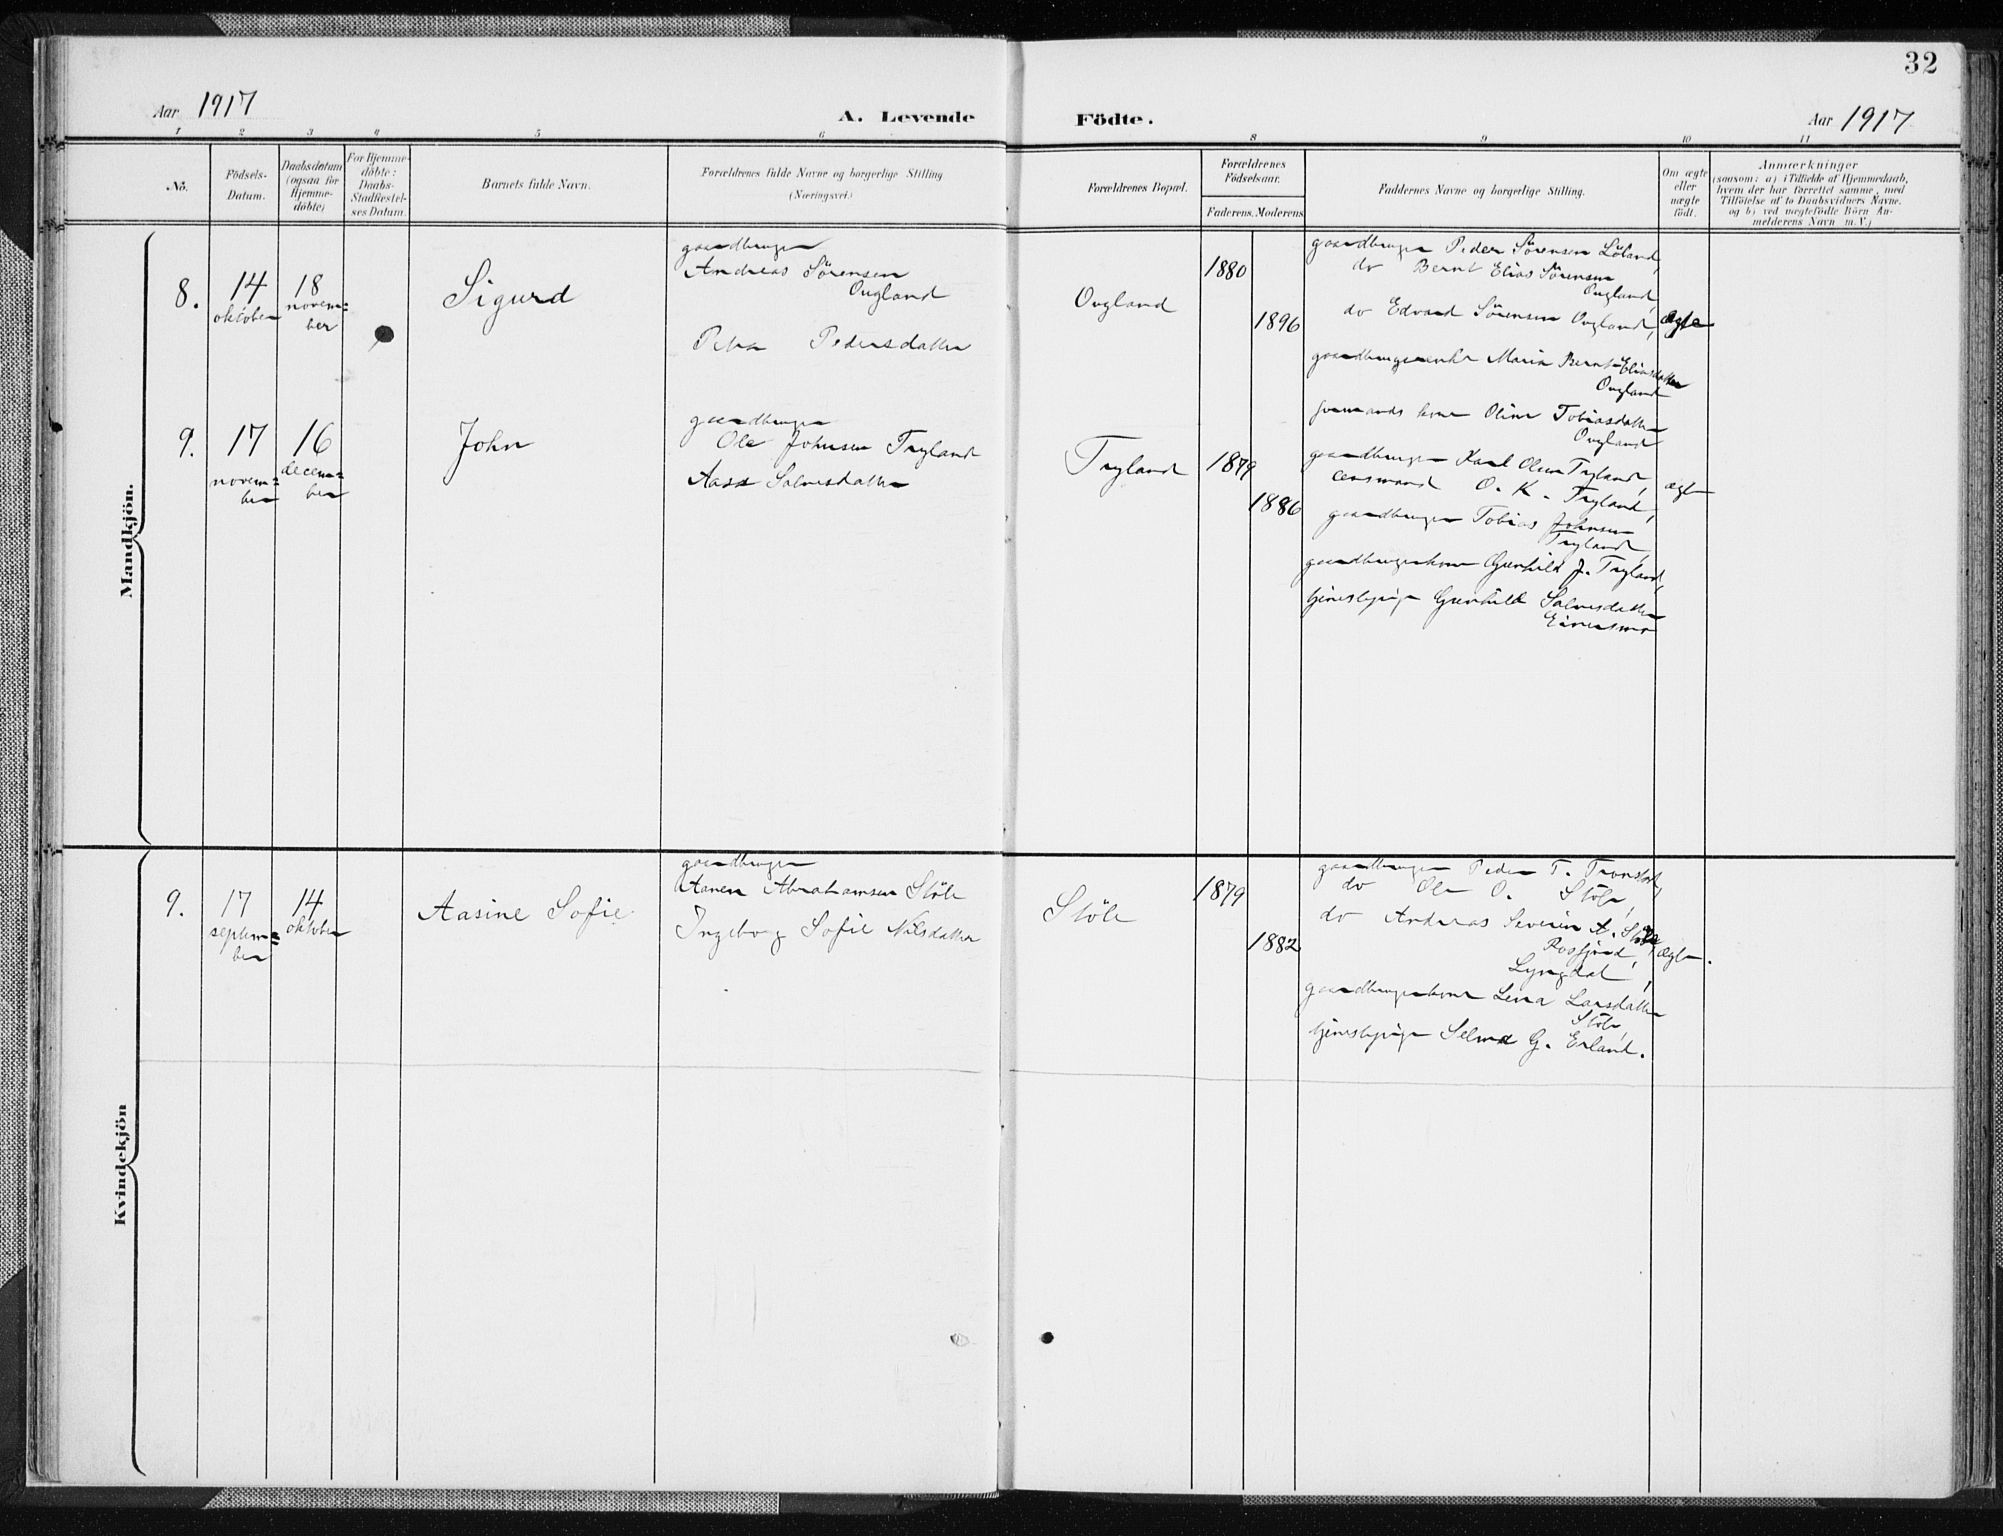 32
Aar 1917
A. Levende Födte.
Aar 1917
1 2 3 4 5 6 8 9 10 11
No.
Födsels-
Datum.
Daabsdatum
(ogsaa for
Hjemme-
döbte)
For Hjemme-
döbte:
Daabs-
Stadfæstel-
ses Datum.
Barnets fulde Navn.
Forældrenes fulde Navne og borgerlige Stilling
(Næringsvei)
Forældrenes Bopæl.
Forældrenes
Födselsaar.
Faderens. Moderens
Faddernes Navne og borgerlige Stilling.
Om ægte
eller
uægte
födt.
Anmærkninger
(saasom: a) i Tilfælde af Hjemmedaab,
hvem der har forrettet samme, med
Tilföielse af to Daabsvidners Navne.
og b) ved uægtefödte Börn An-
melderens Navn m. V.)
Mandkjön.
8.
14
oktober
18
novem=
ber
Sigurd
gaardbruger
Andreas Sörensen
Ougland
Petra Pedersdatter
Ougland
1880
1896
gaardbruger Peder Sörensen Löland,
do Bernt Elias Sörensen
Ougland,
do Edvard Sörensen Ougland,
gaardbrugerenke Maria Bernt Eliasdatter
Ougland
formands kone Oline Tobiasdatter
Ougland
ægte
9.
17
novem=
ber
16
decem=
ber
John
gaardbruger
Ole Johnsen Tryland
Aasa Salvesdatter
Tryland
1879
1886
gaardbruger Karl Olsen Tryland,
lensmand O. K. Tryland,
gaardbruger Tobias Johnsen
Tryland,
gaardbrugerkone Gunhild J. Tryland,
tjenestepige Gunhild Salvesdatter
ægte
Kvindekjön
9.
17
septem=
ber
14
oktober
Aasine Sofie
gaardbruger
Aanen Abrahamsen Stöle
Ingeborg Sofie Nilsdatter
Stöle
1879
1882
gaardbruger Peder T.
do Ole O. Stöle,
do Andreas Severin A. Stöle
Rosfjord,
Lyngdal,
gaardbrugerkone Lena Larsdatter
Stöle,
tjenestepige Selma G. Erland.
ægte.